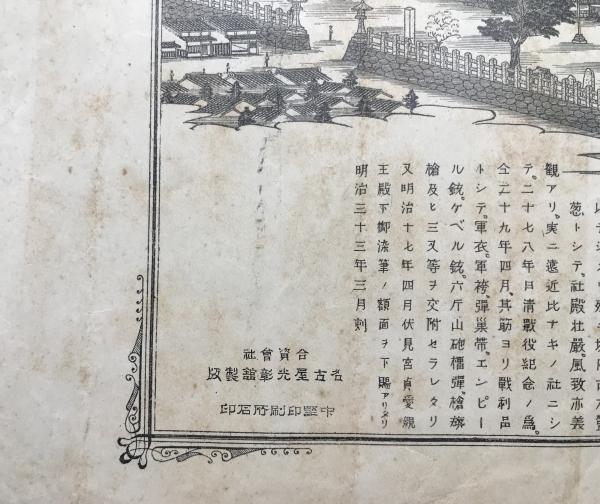 葱トシテ。社殿壮嚴。風致亦美
観アリ。実ニ遠近比ナキノ社ニシ
テ。二十七八年日清戰役紀念ノ爲。
仝二十九年四月。其筋ヨリ戰利品
トシテ。軍衣。軍袴。彈巣帶。エンピー
ル銃。ゲベル銃。六斤山砲榴彈。槍旗
槍及ヒ三叉等ヲ交附セラレタリ
又明治十七年四月伏見宮貞愛親
王殿下御染筆ノ額面ヲ下賜アリタリ
明治三十三年三月刻
合資會社
名古屋光彰舘製版
印刷所石印